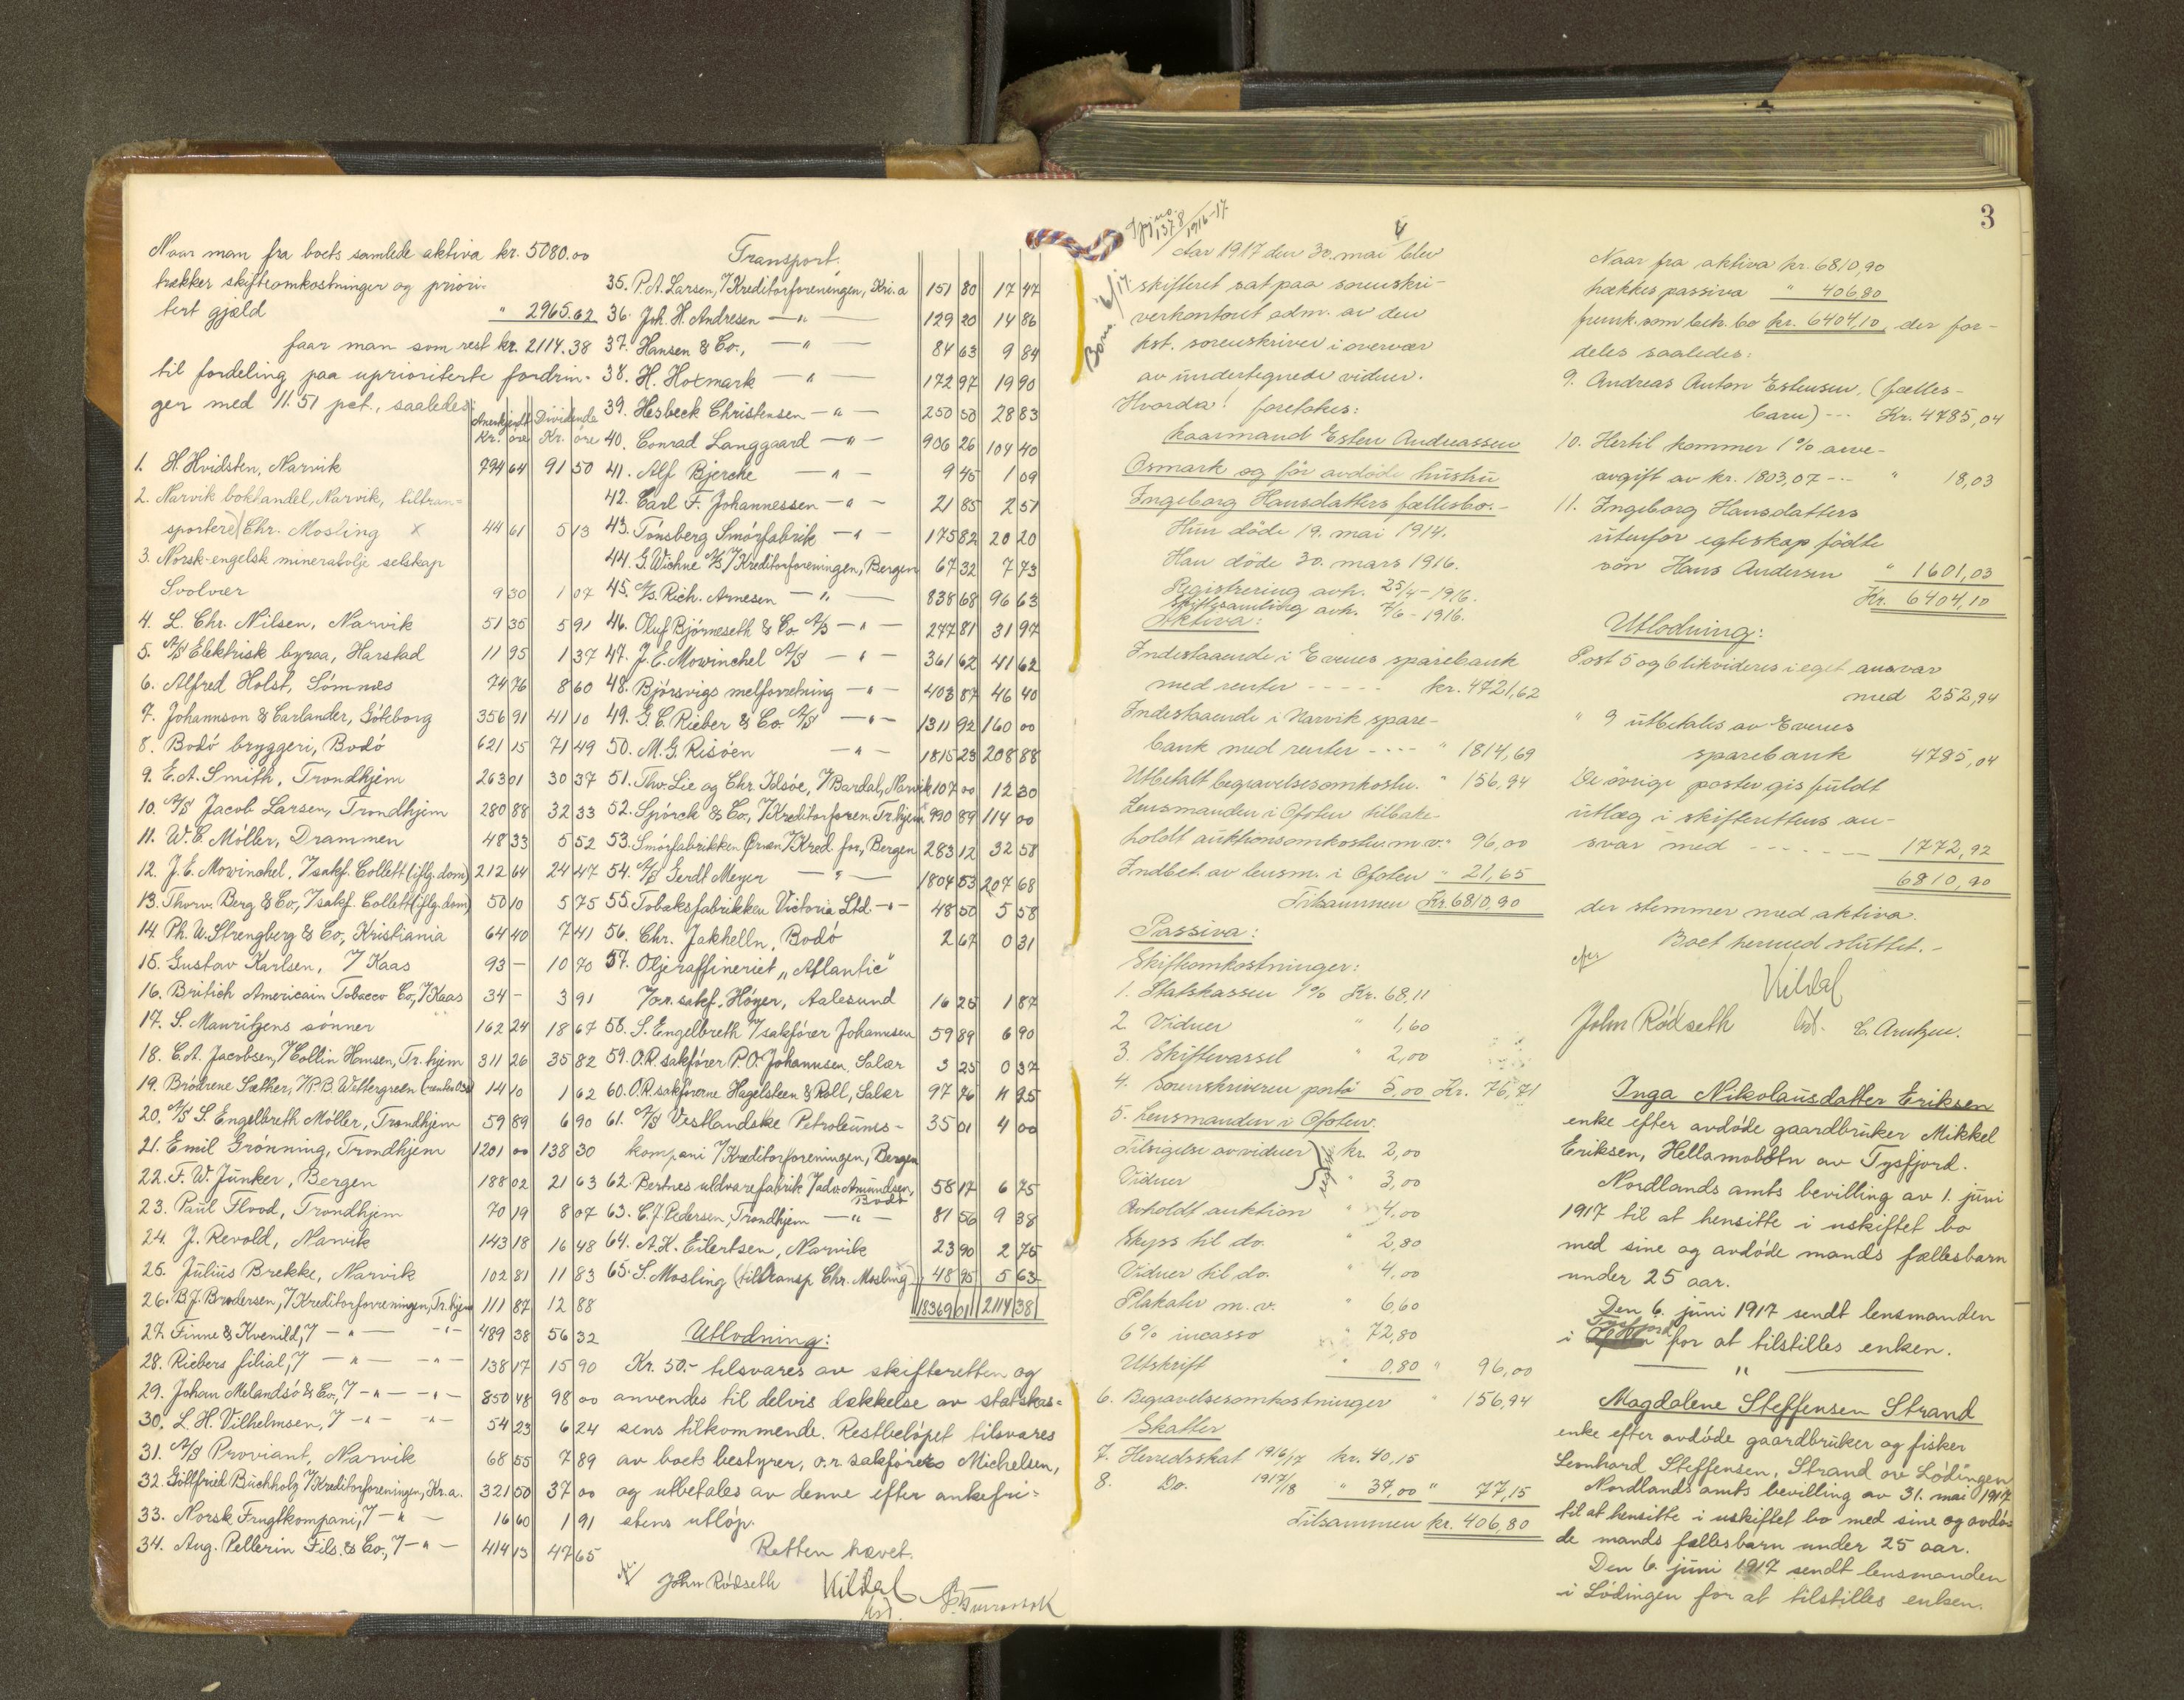 Naar man fra boets samlede aktiva kr. 5080.00
trækker skifteomkostninger og priori-
tert gjæld " 2965.62
faar man som rest kr. 2114.38
til fordeling paa uprioriterte fordrin-
ger med 11.51 pct., saaledes:
Anerkjendt Dividende
Kr. öre Kr. öre
1. H. Hvidsten, Narvik 794 64 91 50
2. Narvik bokhandel, Narvik, tiltran-
sportert Chr. Mosling x 44 61 5 13
3. Norsk-engelsk mineralolje selskap
Svolvær 9 30 1 07
4. L. Chr. Nilsen, Narvik 51 35 5 91
5. A/S Elektrisk byraa, Harstad 11 95 1 37
6. Alfred Holst, Sömnes 74 76 8 60
7. Johannson & Carlander, Göteborg 356 91 41 10
8. Bodö bryggeri, Bodö 621 15 71 49
9. E. A. Smith, Trondhjem 263 01 30 37
10. A/S Jacob Larsen, Trondhjem 280 88 32 33
11. W. C. Möller, Drammen 48 33 5 52
12. J. E. Mowinchel, 7 sakf. Collett (iflg. dom) 212 64 24 47
13. Thorv. Berg & Co, 7 sakf. Collett (iflg. dom) 50 10 5 75
14. Ph. W. Strengberg & Co, Kristiania 64 40 7 41
15. Gustav Karlsen, 7 Kaas 93 - 10 70
16. British Americain Tobacco Co, 7 Kaas 34 - 3 91
17. S. Mauritzens sönner 162 24 18 67
18. C. A. Jacobsen, 7 Collin Hansen, Tr. hjem 311 26 35 82
19. Brödrene Sæther, 7 P. B. Wettergreen 14 10 1 62
20. A/S S. Engelbreth Möller, Trondhjem 59 89 6 90
21. Emil Grönning, Trondhjem 1201 00 138 30
22. F. W. Junker, Bergen 188 02 21 63
23. Paul Flood, Trondhjem 70 19 8 07
24. J. Revold, Narvik 143 18 16 48
25. Julius Brekke, Narvik 102 81 11 83
26. B. J. Brodersen, 7 Kreditorforreningen, Tr. hjem 111 87 12 88
27. Finne & Kvenild, 7 - " - - " - 489 38 56 32
28. Riebers filial, 7 - " - - " - 138 17 15 90
29. Johan Melandsö & Co, 7 - " - - " - 850 48 98 00
30. L. H. Vilhelmsen, 7 - " - - " - 54 23 6 24
31. A/S Proviant, Narvik 68 55 7 89
32. Gottfried Buchholz 7 Kreditorforeningen, Kr.a. 321 50 37 00
33. Norsk Frugtkompani, 7 - " - 16 60 1 91
34. Aug. Pellerin Fils. & Co, 7 - " - 414 13 47 65
Transport.
35. P. A. Larsen, 7 Kreditorforeningen, Kri.a 151 80 17 47
36. Joh. H. Andresen - " - 129 20 14 86
37. Hansen & Co., - " - 84 63 9 84
38. H. Hotmark - " - 172 97 19 90
39. Hesbeck Christensen - " - 250 50 28 83
40. Conrad Langgaard - " - 906 26 104 40
41. Alf Bjercke - " - 9 45 1 09
42. Carl F. Johannessen - " - 21 85 2 51
43. Tönsberg Smörfabrik - " - 175 82 20 20
44. G. Wiehne A/S 7 Kreditorforeningen, Bergen 67 32 7 73
45. A/S. Rich. Arnesen - " - 838 68 96 63
46. Oluf Björneseth & Co A/S - " - 277 81 31 97
47. J. E. Mowinchel A/S - " - 361 62 41 62
48. Björsvigs melforretning - " - 403 87 46 40
49. G. C. Rieber & Co. A/S - " - 1311 92 160 00
50. M. G. Risöen - " - 1815 23 208 88
51. Thv. Lie og Chr. Idsöe, 7 Bardal, Narvik 107 00 12 30
52. Spörck & Co, 7 Kreditorforen. Tr. hjem 990 89 114 00
53. Smörfabrikken Ørnen 7 Kred. for, Bergen 283 12 32 58
54. A/S Gerdt Meyer - " - 1804 53 207 68
55. Tobaksfabrikken Victoria Ltd - " - 48 50 5 58
56. Chr. Jakhelln, Bodö 2 67 0 31
57. Oljeraffineriet „Atlantic"
7 o.r. sakf. Höyer, Aalesund 16 25 1 87
58. S. Engelbreth 7 sakförer Johannsen 59 89 6 90
59. O.R. sakförer P. O. Johannsen, Salær 3 25 0 37
60. O.R. sakförerne Hagelsteen & Roll, Salær 97 76 11 25
61. A/S Vestlandske Petroleums- 35 01 4 00
kompani 7 Kreditorforeningen, Bergen
62. Bertnes uldvarefabrik 7 adv. Amundsen, Bodö 58 17 6 75
63. C. J. Pedersen, Trondhjem - " - 81 56 9 38
64. A. K. Eilertsen, Narvik 23 90 2 75
65. S. Mosling (tiltransp Chr. Mosling) 48 95 5 63
18369 01 2114 38
Utlodning:
Kr. 50.- tilsvares av skifteretten og
anvendes til delvis dækkelse av statskas-
sens tilkommende. Restbelöpet tilsvares
av boets bestyrer, o.r. sakförers Michelsen,
og utbetales av denne efter ankefri-
stens utlöp.
Retten hævet.
John Rödseth Kildal
cst.
3
Jnr no. 1378/1916-17
Aar 1917 den 30. mai blev
skifteret sat paa sorenskri-
verkontoret adm. av den
kst. sorenskriver i overvær
av undertegnede vidner.
Hvorda! foretokes:
kaarmand Esten Andreassen
Osmark og för avdöde hustru
Ingeborg Hansdatters fællesbo.-
Hun döde 19. mai 1914.
Han döde 30. mars 1916.
Registrering avh. 25/4 - 1916.
Skiftesamling avh. 7/6 - 1916.
Aktiva:
Indestaaende i Evenes sparebank
med renter - - - - - kr. 4721,62
Indestaaende i Narvik spare-
bank med renter - - - - " 1814,69
Utbetalt begravelsesomkostn. " 156,94
Lensmanden i Ofoten tilbake-
holdt auktionsomkostn. m.v. " 96,00
Indbet. av lensm. i Ofoten " 21,65
Tilsammen Kr. 6810,90
Passiva:
Skifteomkostninger:
1. Statskassen 1% Kr. 68,11
2. Vidner " 1,60
3. Skiftevarsel " 2,00
4. Sorenskriveren porto 5,00 Kr. 76,71
5. Lensmanden i Ofoten.
Tilsigelse av vidner kr. 2,00
Vidner " 3,00
Avholdt auktion " 4,00
Skyss til do. " 2,80
Vidner til do. " 4,00
Plakater m.v. " 6,60
6% incasso " 72,80
Utskrift " 0,80 " 96,00
6. Begravelsesomkostninger " 156,94
Skatter
7. Herredsskat 1916/17 kr. 40,15
8. Do. 1917/18 " 37,00 " 77,15
Tilsammen kr. 406,80
Naar fra aktiva kr. 6810,90
trækkes passiva " 406,80
fremk. som beh. bo kr. 6404,10 der for-
deles saaledes:
9. Andreas Anton Estensen, (fælles-
barn) - - - Kr. 4785,04
10. Hertil kommer 1% arve-
avgift av kr. 1803,07 - - - " 18,03
11. Ingeborg Hansdatters
utenfor egteskap födte
sön Hans Andersen " 1601,03
Kr. 6404,10
Utlodning:
Post 5 og 6 likvideres i eget ansvar
med 252,94
" 9 utbetales av Evenes
sparebank 4785,04
De övrige poster gis fuldt
utlæg i skifterettens an-
svar med - - - - - 1772,92
6810,90
der stemmer med aktiva.
Boet hermed sluttet.-
Kildal
John Rödseth cst. C. Arntzen.
Inga Nikolausdatter Eriksen
enke efter avdöde gaardbruker Mikkel
Eriksen, Hellamobotn av Tysfjord.
Nordlands amts bevilling av 1. juni
1917 til at hensitte i uskiftet bo
med sine og avdöde mands fællesbarn
under 25 aar.
Den 6. juni 1917 sendt lensmanden
i Tysfjord for at tilstilles enken.
"
Magdalene Steffensen Strand
enke efter avdöde gaardbruker og fisker
Leonhard Steffensen, Strand av Lödingen
Nordlands amts bevilling av 31. mai 1917
til at hensitte i uskiftet bo med sine og avdö-
de mands fællesbarn under 25 aar.
Den 6. juni 1917 sendt lensmanden
i Lödingen for at tilstilles enken.